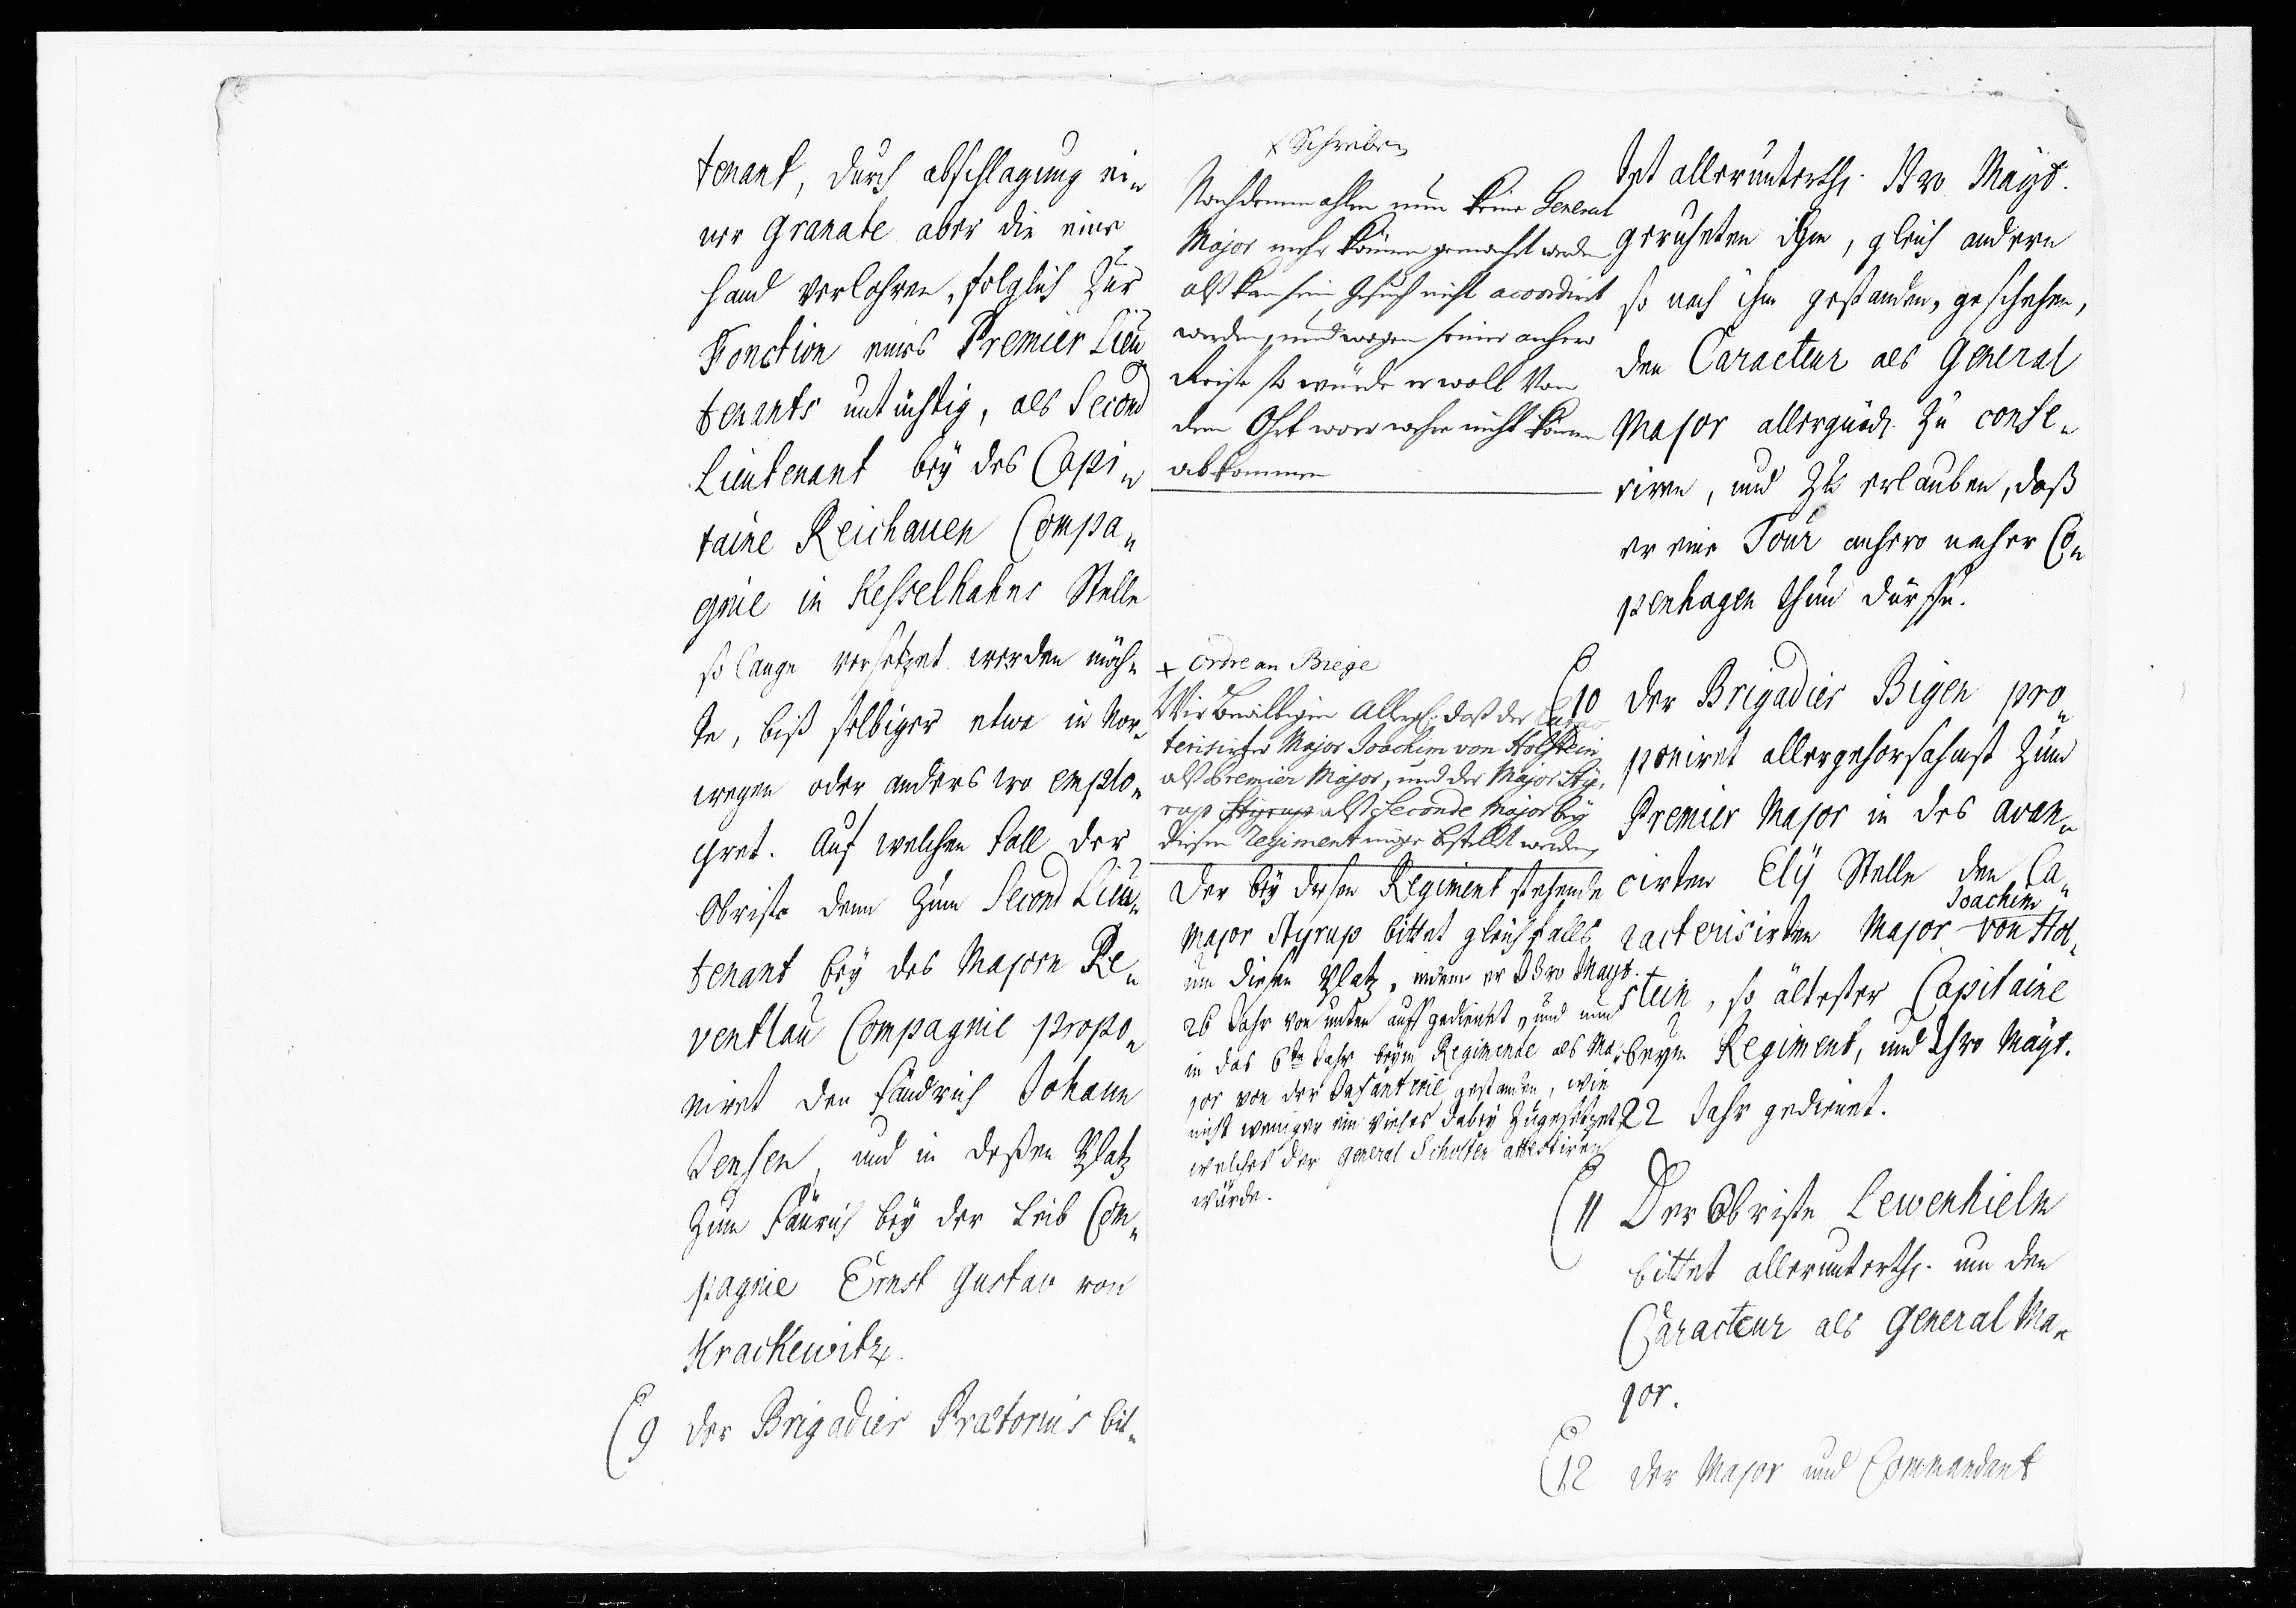 tenant, durch abschlagung ei-
ner Granate aber die eine
Hand verlohren, folglich zur
Fonction eines Premier Lieu-
tenants untüchtig, als Second
Lieutenant bey des Capi-
taine Reichauen Compa-
gnie in Kesselhahns Stelle
so lange versetzet werden möch-
te, biß selbiger etwa in Nor-
wegen oder anders wo emplo-
yret. Auf welchen Fall der
Obriste denn zum Second Lieu-
tenant bey des Majorn Re-
ventlau Compagnie propo-
niret den Fändrich Johann
Jensen, und in deßen Platz
zum Fänrich bey der Leib Com-
pagnie Ernst Gustav von
Krackewitz.
9 Der Brigadier Prætorius bit-
+ Schreiben
Nachdemmahlen nun keine General
Major mehr können gemacht werden
alß kan sein Gesuch nicht accordirt
werden, und wegen seiner anhero
Reise so würde er woll Von
dem Ohrt woer wehre nicht können
abkommen
+ ordre an Biege
Wir Bewilligen Allergl: daß der Carac
terisirter Major Joachim von Holstein
alß Premier Major, und der Major Sty-
rup Styrup alß Seconde Major bey
diesen Regiment möge bestellet werden,
Der bey desen Regiment stehende
Major Styrup bittet gleichfalls
um diesen Platz, indem er Ihro Mayt.
26 Jahr von unten auff gedienet, und nun
in das 6te Jahr beym Regimente als Ma-
jor von der Infanterie gestanden, wie
nicht weniger ein vieles dabey zugesetzet,
welches der General Scholten attestiren
würde.
tet allerunterth. Ihro Mayt.
geruheten ihm, gleich andern
so nach ihm gestanden, geschehen,
den Caracteur als General
Major allergnäd. zu confe-
riren, und zu erlauben, daß
er eine Tour anhero nacher Co-
penhagen thun dürffe.
10 Der Brigadier Bigen pro-
poniret allergehorsahmst zum
Premier Major in des avan-
cirten Ely Stelle den Ca-
racterisirten Major Joachim von Hol-
stein, so ältester Capitaine
beym Regiment, und Ihro Mayt.
22 Jahr gedienet.
11 Der Obriste Lewenhielm
bittet allerunterth. um den
Caracteur als General Ma-
jor.
12 Der Major und Commandant